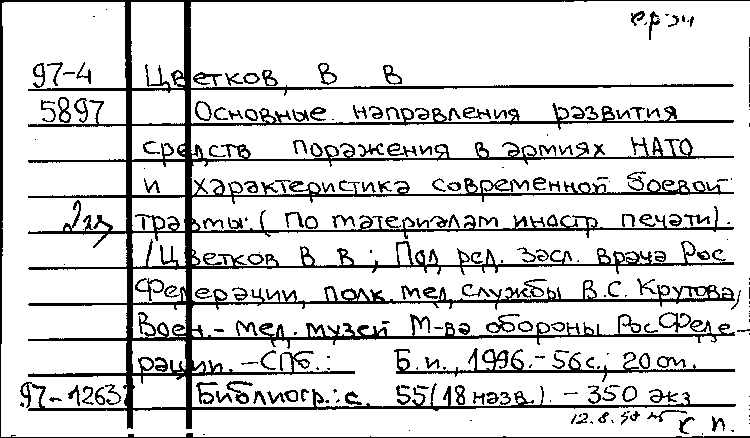 97-4 Цветков, В В
5897 Основные направления развития
средств поражения в армиях НАТО
и характеристика современной боевой
2 экз травмы: (По материалам иностр. печати).
/Цветков В В; Под ред. засл. врача Рос
Федерации, полк. мед. службы В.С. Крутова,
Воен.-мед. музей М-ва обороны Рос Феде-
рации. -СПб.: Б.и., 1996.-56с.; 20см.
97-1263 Библиогр.: с. 55(18 назв.). - 350 экз
12.8.
с.п.